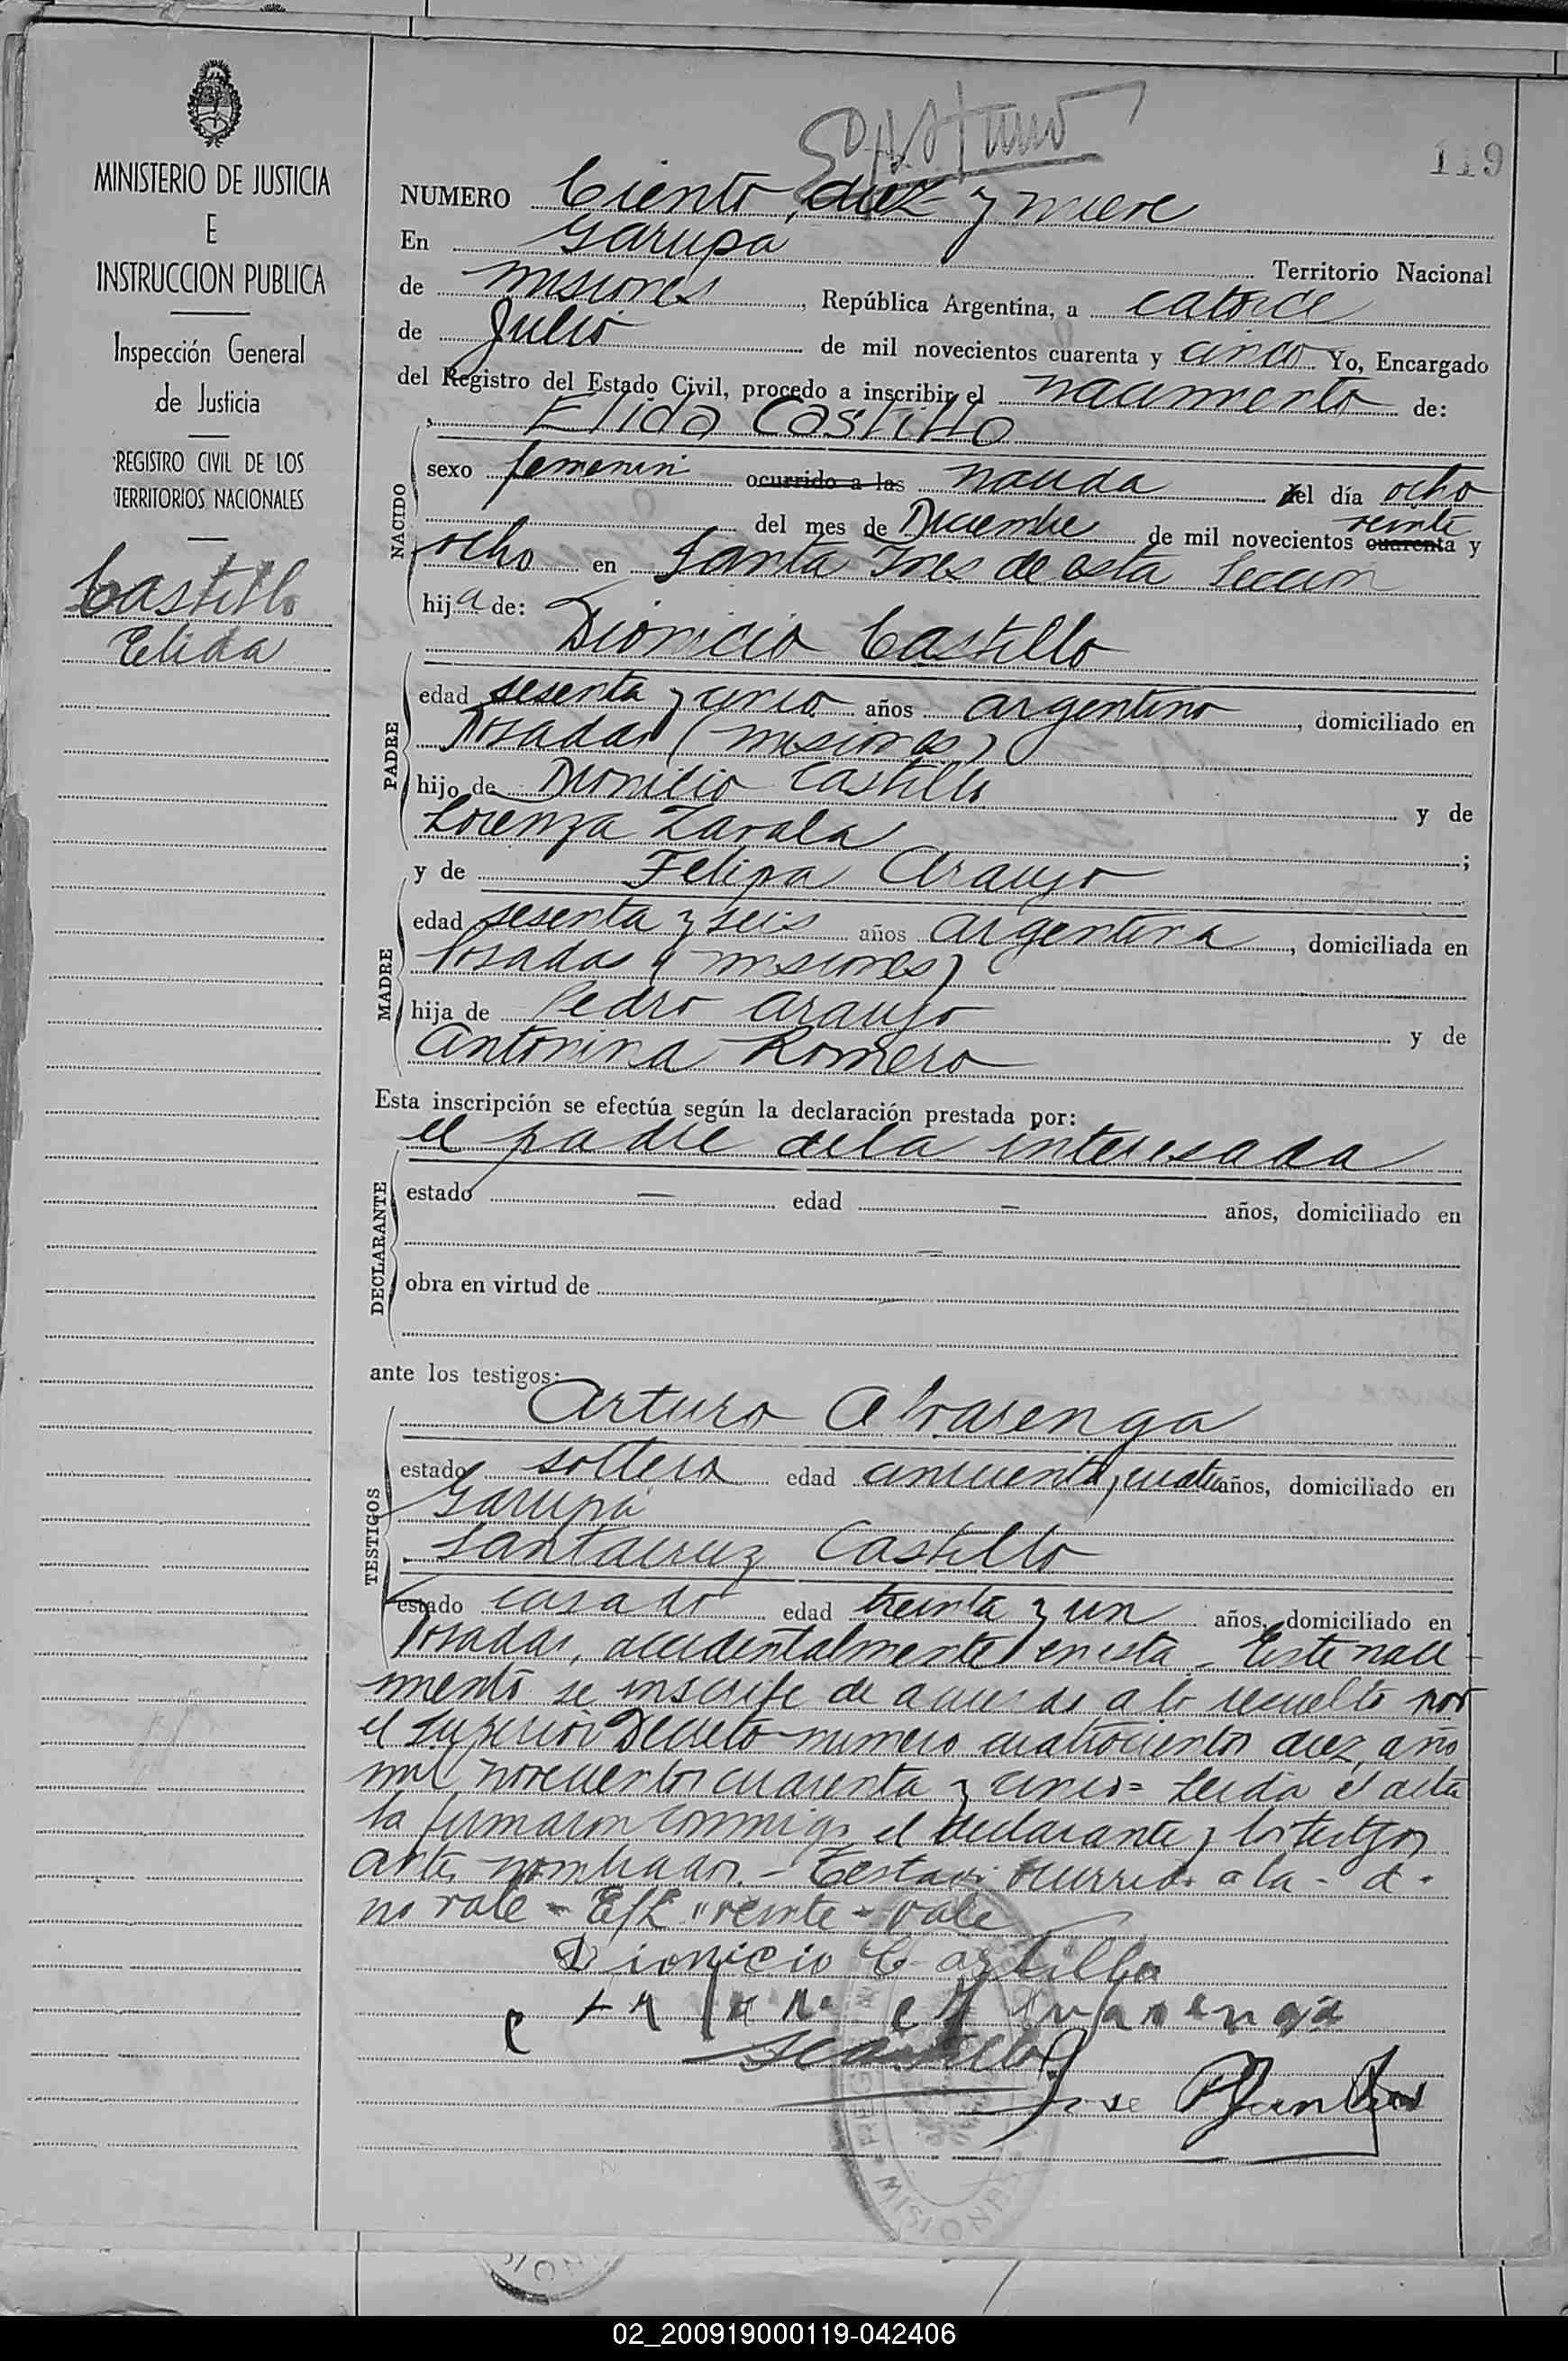 MINISTERIO DE JUSTICIA
E
INSTRUCCION PUBLICA
Inspección General
de Justicia
REGISTRO CIVIL DE LOS
TERRITORIOS NACIONALES
Castillo
Elida
119
NUMERO Ciento diez y nueve
En Garupa Territorio Nacional
de Misiones, República Argentina, a catorce
de Julio de mil novecientos cuarenta y cinco Yo, Encargado
del Registro del Estado Civil, procedo a inscribir el nacimiento de:
Elida Castillo
NACIDO
sexo femenin ocurrido a las nacida el día ocho
del mes de Diciembre de mil novecientos cuarenta veinte y
ocho en Santa Ines de esta Seccion
hija de:
Dionicio Castillo
PADRE
edad sesenta y cinco años argentino, domiciliado en
Posadas (Misiones)
hijo de Dionicio Castillo y de
Lorenza Zavala;
y de Felipa Araujo
MADRE
edad sesenta y seis años argentina, domiciliada en
Posadas (Misiones)
hija de Pedro Araujo y de
Antonina Romero
Esta inscripción se efectúa según la declaración prestada por:
el padre dela interesada
DECLARANTE
estado — edad — años, domiciliado en
—
obra en virtud de
ante los testigos:
Arturo Alvarenga
TESTIGOS
estado soltero edad cincuenta y cuatro años, domiciliado en
Garupa
Santacruz Castillo
estado casado edad treinta y un años, domiciliado en
Posadas, accidentalmente en esta - Este naci-
miento se inscribe de acuerdo a lo resuelto por
el Superior Decreto numero cuatrocientos diez, año
mil novecientos cuarenta y cinco = Leida el acta
la firmaron conmigo el declarante y los testigos
antes nombrados. - Testado: ocurrido a la - d -
no vale - E/L "veinte - vale
Dionicio Castillo
Alvarenga
SCastillo
Jose
REGIS
MISIONES
02_200919000119-042406